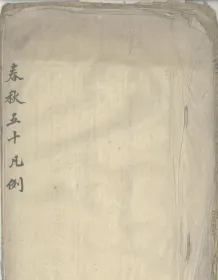 春秋五十凡例